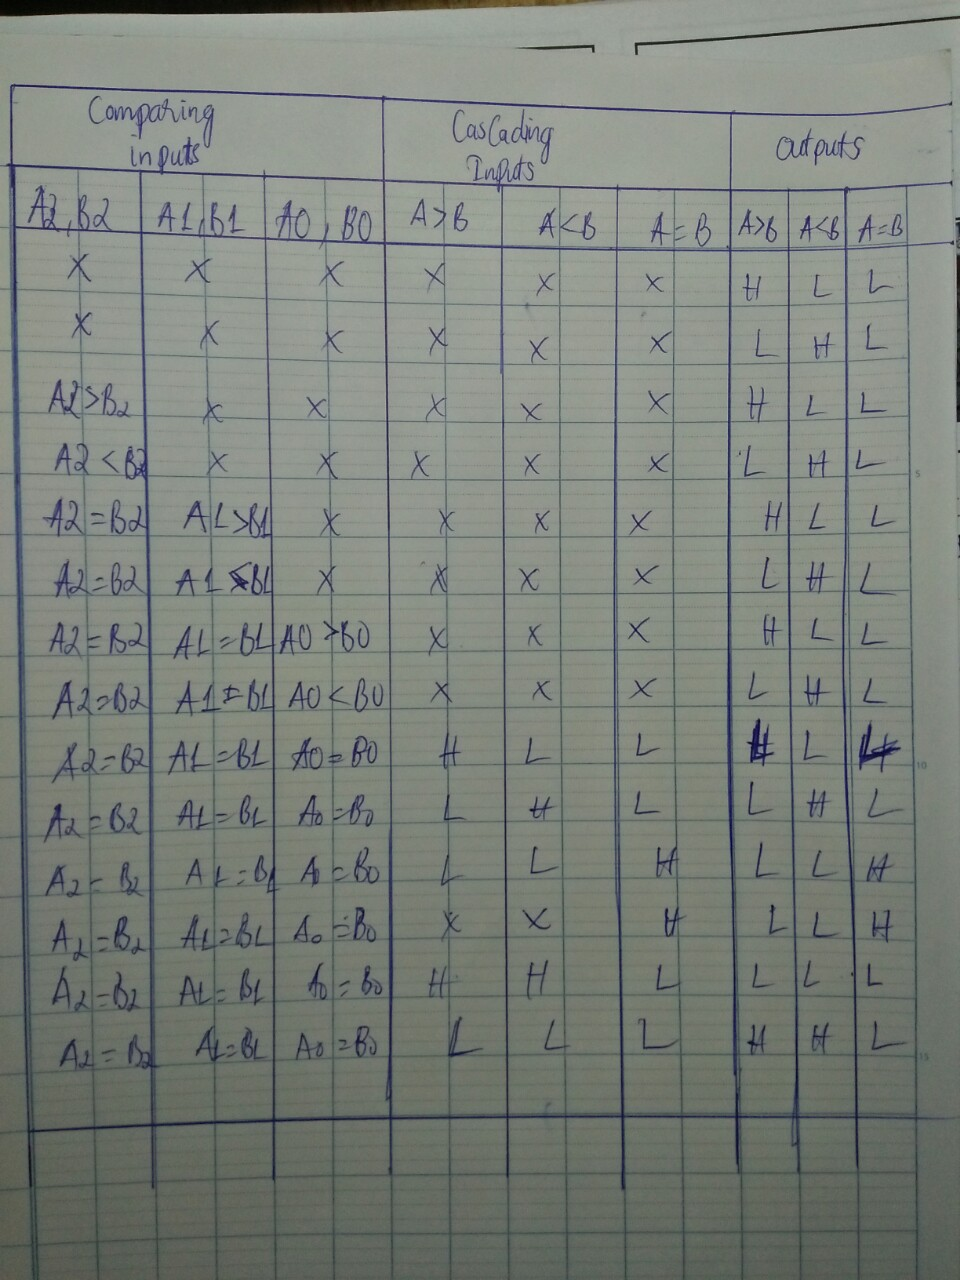 Comparing inputs Cascading Inputs outputs
A2,B2 A1,B1 A0,B0 A>B A<B A=B A>B A<B A=B
X X X X X X H L L
X X X X X X L H L
A2>B2 X X X X X H L L
A2<B2 X X X X X L H L
A2=B2 A1>B1 X X X X H L L
A2=B2 A1<B1 X X X X L H L
A2=B2 A1=B1 A0>B0 X X X H L L
A2=B2 A1=B1 A0<B0 X X X L H L
A2=B2 A1=B1 A0=B0 H L L H L L
A2=B2 A1=B1 A0=B0 L H L L H L
A2=B2 A1=B1 A0=B0 L L H L L H
A2=B2 A1=B1 A0=B0 X X H L L H
A2=B2 A1=B1 A0=B0 H H L L L L
A2=B2 A1=B1 A0=B0 L L L H H L